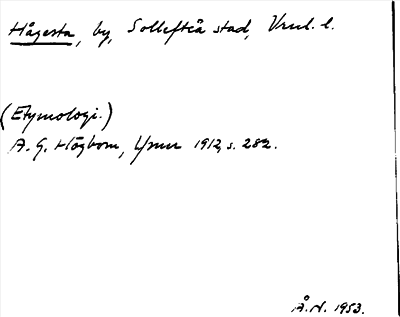 Hågesta, by, Sollefteå stad, Vrnl. l.
(Etymologi.)
A. G. Högbom, Ymer 1912, s. 282.
Å. N. 1953.